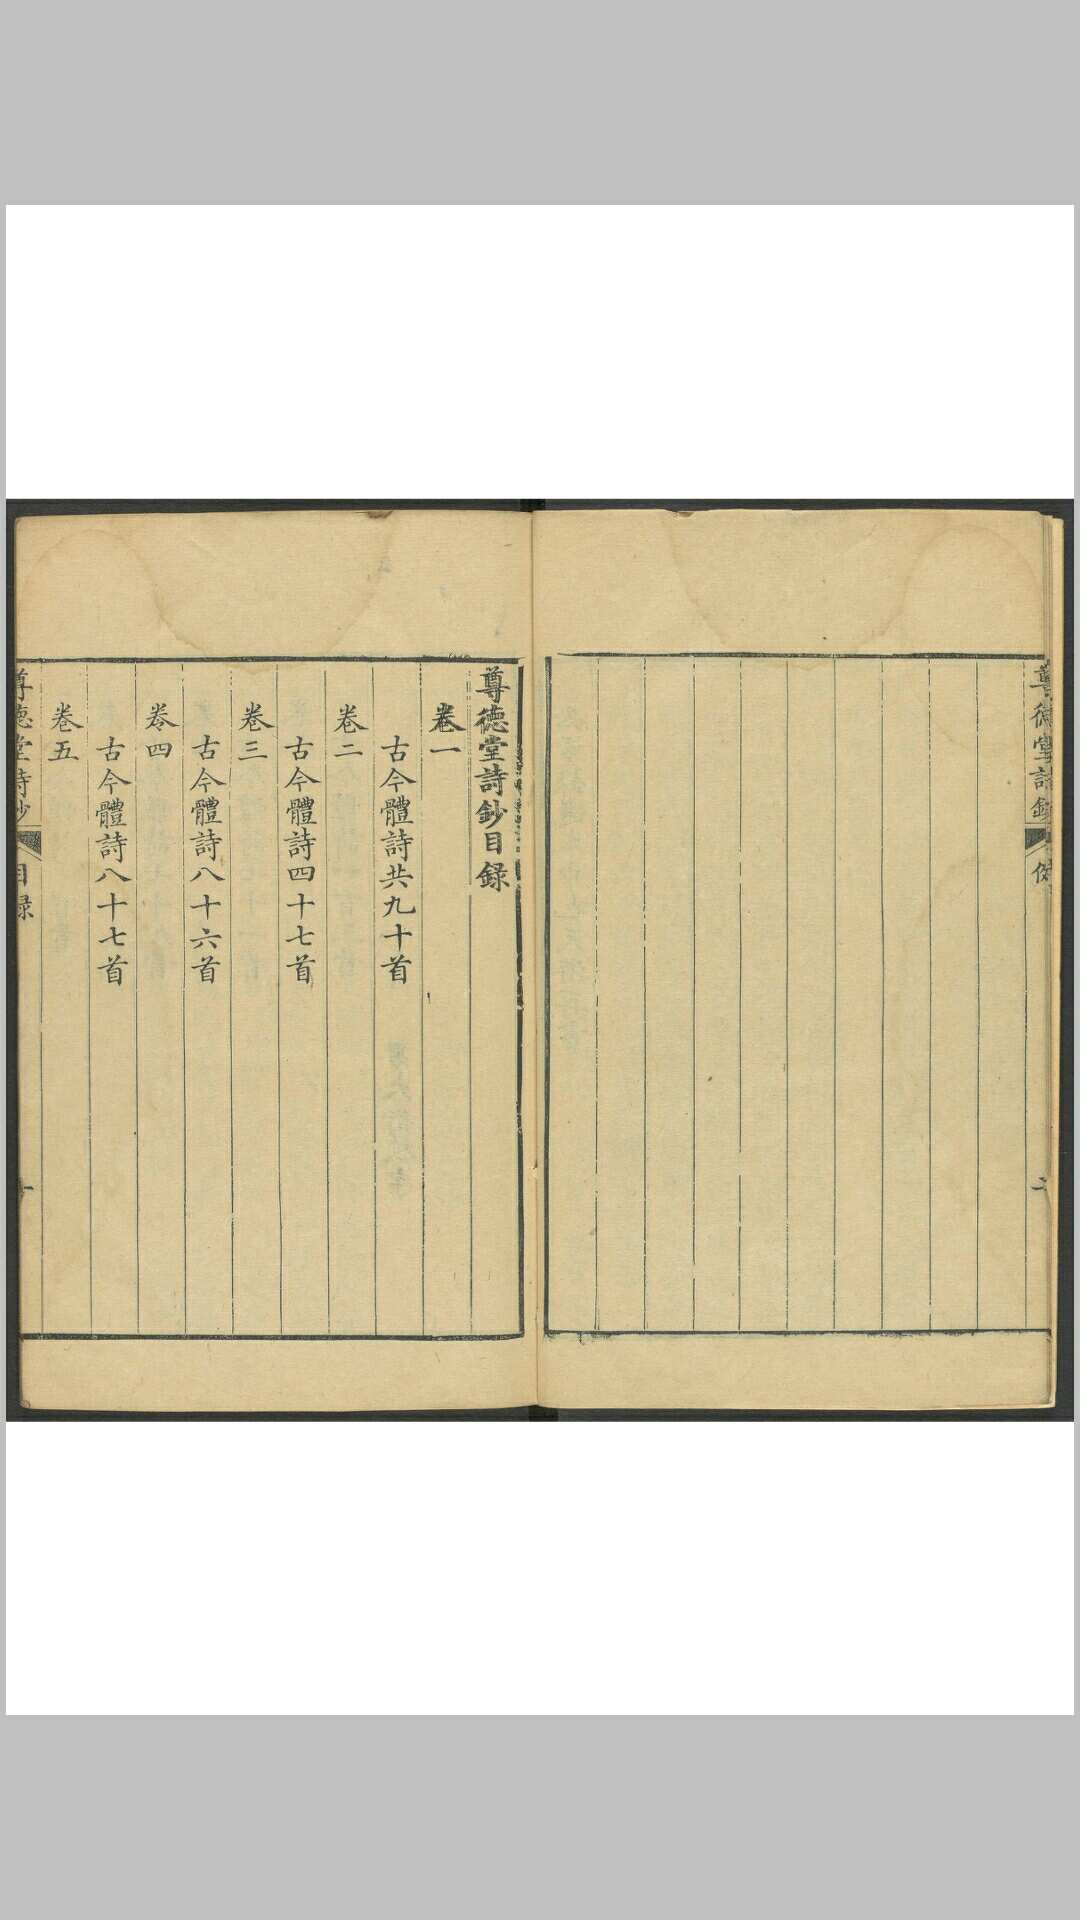 尊德堂詩鈔
二
尊德堂詩鈔目録
卷一
古今體詩共九十首
卷二
古今體詩四十七首
卷三
古今體詩八十六首
卷四
古今體詩八十七首
卷五
尊德堂詩鈔
目録
一